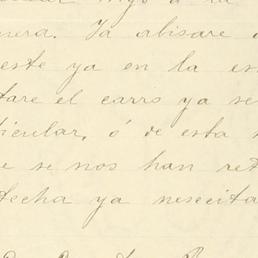 migo a la
nera. Ya abisare
este ya en la es
tare el carro ya se
ticular, ó de esta
e se nos han ret
fecha ya nesecita